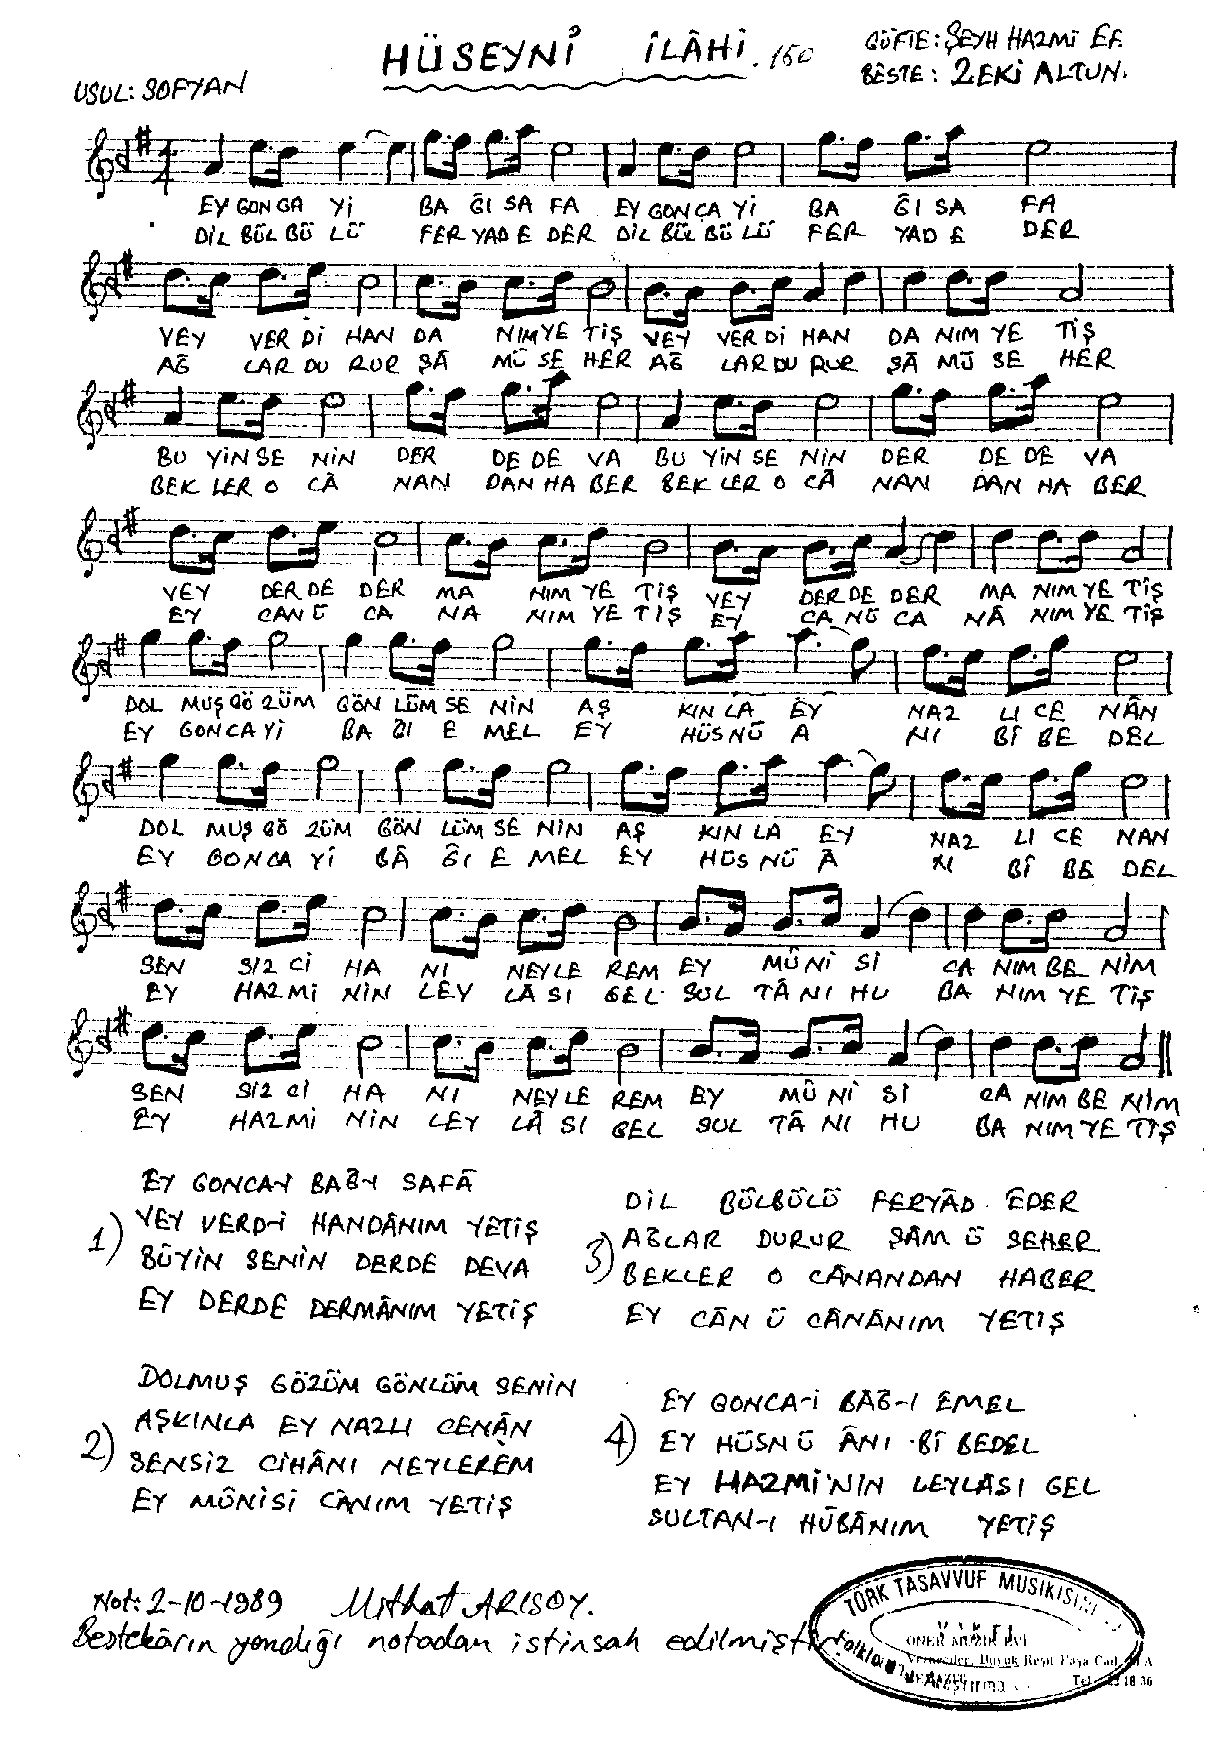 HÜSEYNİ İLÂHİ. 160
GÜFTE: ŞEYH HAZMİ EF.
BESTE: ZEKİ ALTUN.
USUL: SOFYAN
EY GON CA Yİ BA ĞI SA FA EY GON CA Yİ BA ĞI SA FA
DİL BÜL BÜ LÜ FER YAD E DER DİL BÜL BÜ LÜ FER YAD E DER
VEY VER Dİ HAN DA NIM YE TİŞ VEY VER Dİ HAN DA NIM YE TİŞ
AĞ LAR DU RUR ŞÃ MÜ SE HER AĞ LAR DU RUR ŞÃ MÜ SE HER
BU YİN SE NİN DER DE DE VA BU YİN SE NİN DER DE DE VA
BEK LER O CÂ NAN DAN HA BER BEK LER O CÂ NAN DAN HA BER
VEY DER DE DER MA NIM YE TİŞ VEY DER DE DER MA NIM YE TİŞ
EY CAN Ü CA NA NIM YE TİŞ EY CA NÜ CA NÂ NIM YE TİŞ
DOL MUŞ GÖ ZÜM GÖN LÜM SE NİN AŞ KIN LA EY NAZ LI CE NÂN
EY GON CA Yİ BA ĞI E MEL EY HÜS NÜ A NI Bİ BE DEL
DOL MUŞ GÖ ZÜM GÖN LÜM SE NİN AŞ KIN LA EY NAZ LI CE NAN
EY GON CA Yİ BÂ ĞI E MEL EY HÜS NÜ Â NI BÎ BE DEL
SEN SİZ Cİ HA NI NEY LE REM EY MÛ Nİ Sİ CA NIM BE NİM
EY HAZ Mİ NİN LEY LÂ SI GEL SUL TÂ NI HU BA NIM YE TİŞ
SEN SİZ Cİ HA NI NEY LE REM EY MÛ Nİ Sİ CA NIM BE NİM
EY HAZ Mİ NİN LEY LÂ SI GEL SUL TÂ NI HU BA NIM YE TİŞ
1) EY GONCA-I BAĞ-I SAFÃ
VEY VERD-İ HANDÂNIM YETİŞ
BÛYİN SENİN DERDE DEVA
EY DERDE DERMÂNIM YETİŞ
2) DOLMUŞ GÖZÜM GÖNLÜM SENİN
AŞKINLA EY NAZLI CENÂN
SENSİZ CİHÂNI NEYLEREM
EY MÛNİSİ CÂNIM YETİŞ
3) DİL BÜLBÜLÜ FERYÂD EDER
AĞLAR DURUR ŞÂM Ü SEHER
BEKLER O CÂNANDAN HABER
EY CÂN Ü CÂNÂNIM YETİŞ
4) EY GONCA-İ BAĞ-I EMEL
EY HÜSN Ü ÂNI BÎ BEDEL
EY HAZMİ'NİN LEYLÂSI GEL
SULTAN-I HÛBÂNIM YETİŞ
Not: 2-10-1989 Mithat ARISOY.
Bestekârın yazdığı notadan istinsah edilmiştir
TÜRK TASAVVUF MUSIKISINI